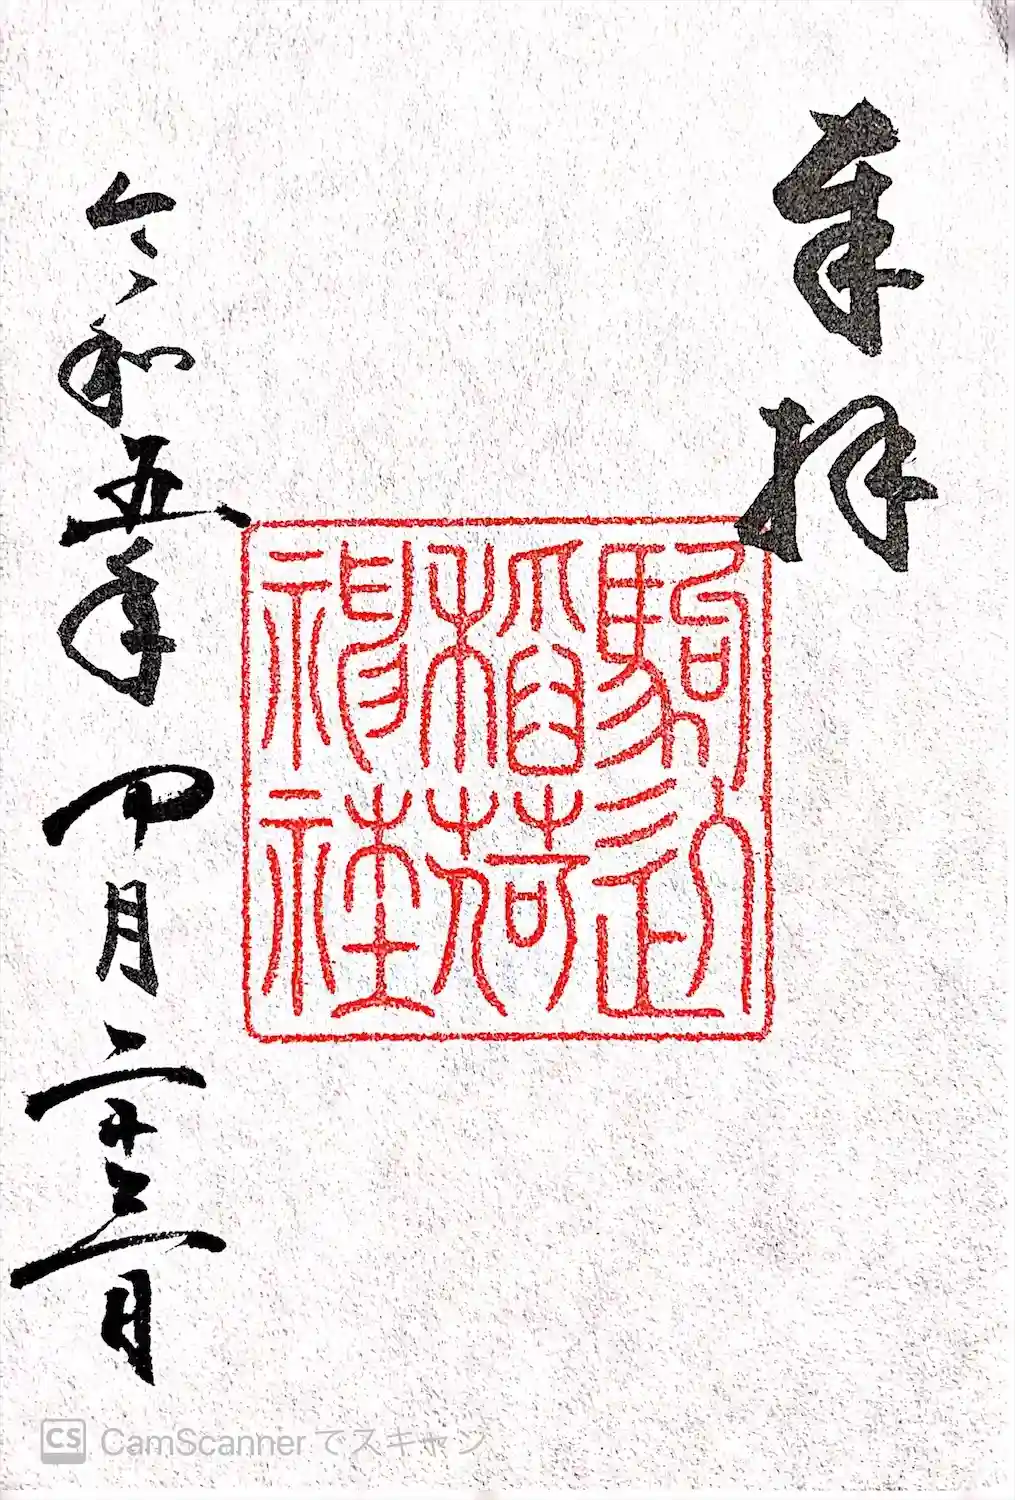 奉拝
駒込
稲荷
神社
令和五年四月二十三日
CS CamScanner でスキャン